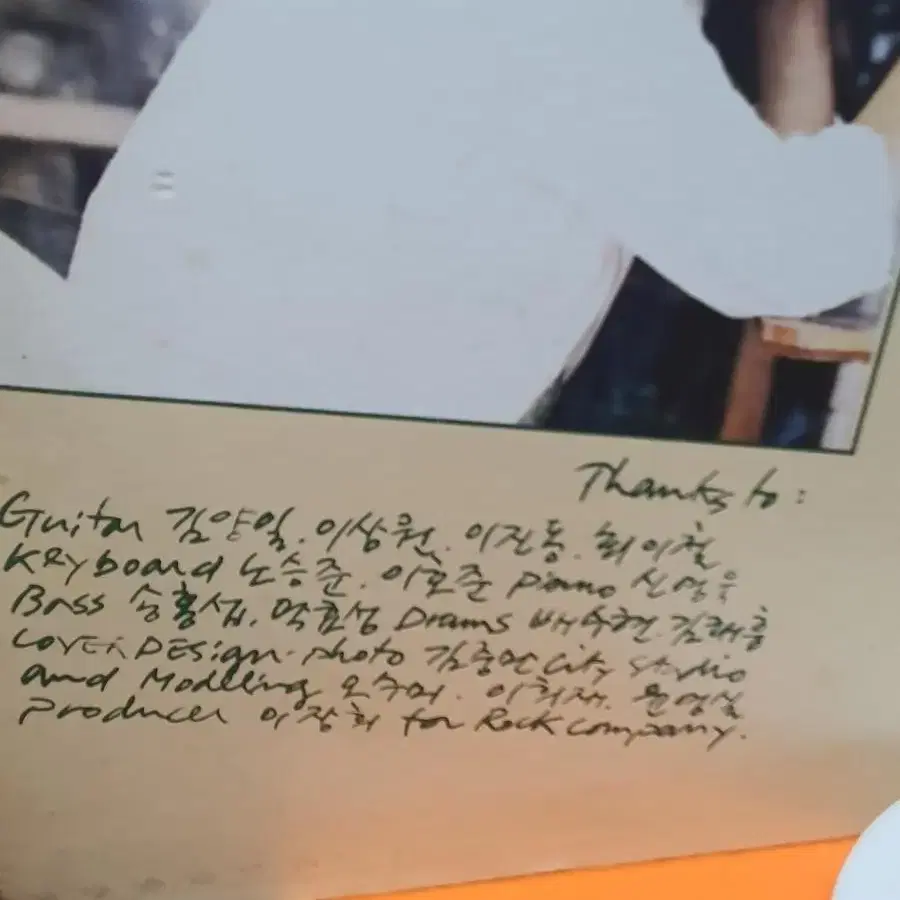 Thanks to :
Guitar 김양일. 이상원. 이진동. 최이철
Keyboard 노승준. 이호준 Piano 신병욱
Bass 송홍섭. 박효성 Drums 배수현. 김래흥
COVER DESign. photo 김중만 City Studio
and Modelling 오수미. 이희재.
Producer 이장희 for Rock company.